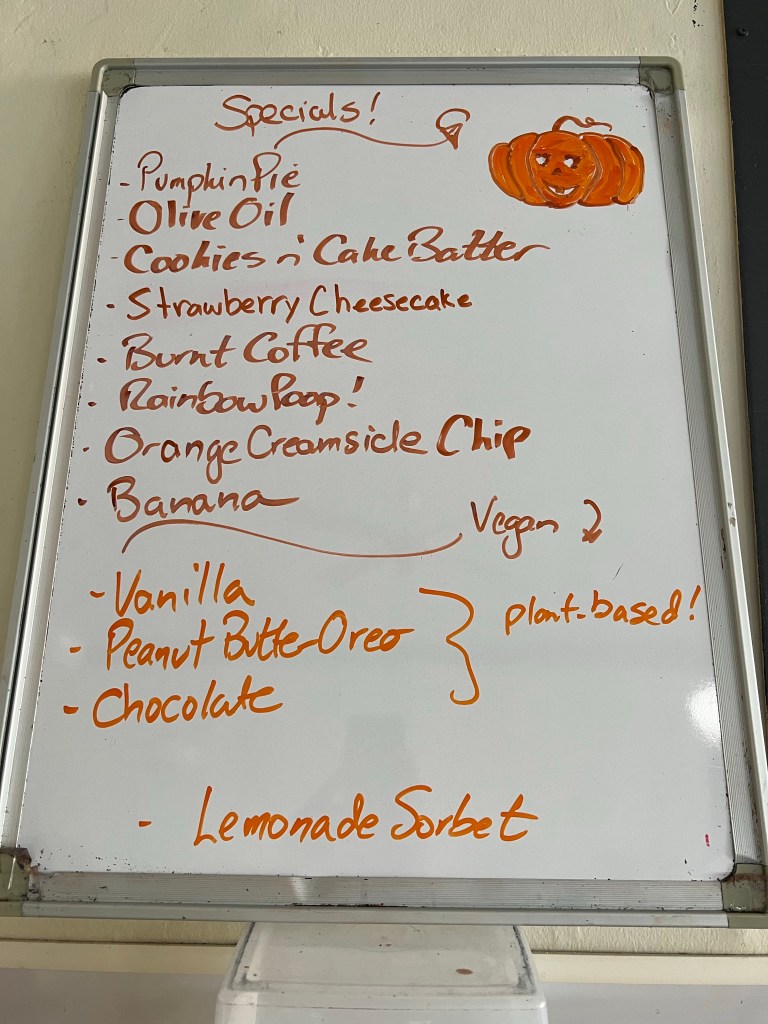 Specials!
- Pumpkin Pie
- Olive Oil
- Cookies n' Cake Batter
- Strawberry Cheesecake
- Burnt Coffee
- Rainbow Poop!
- Orange Creamsicle Chip
- Banana
Vegan
- Vanilla
- Peanut Butter Oreo
plant-based!
- Chocolate
- Lemonade Sorbet